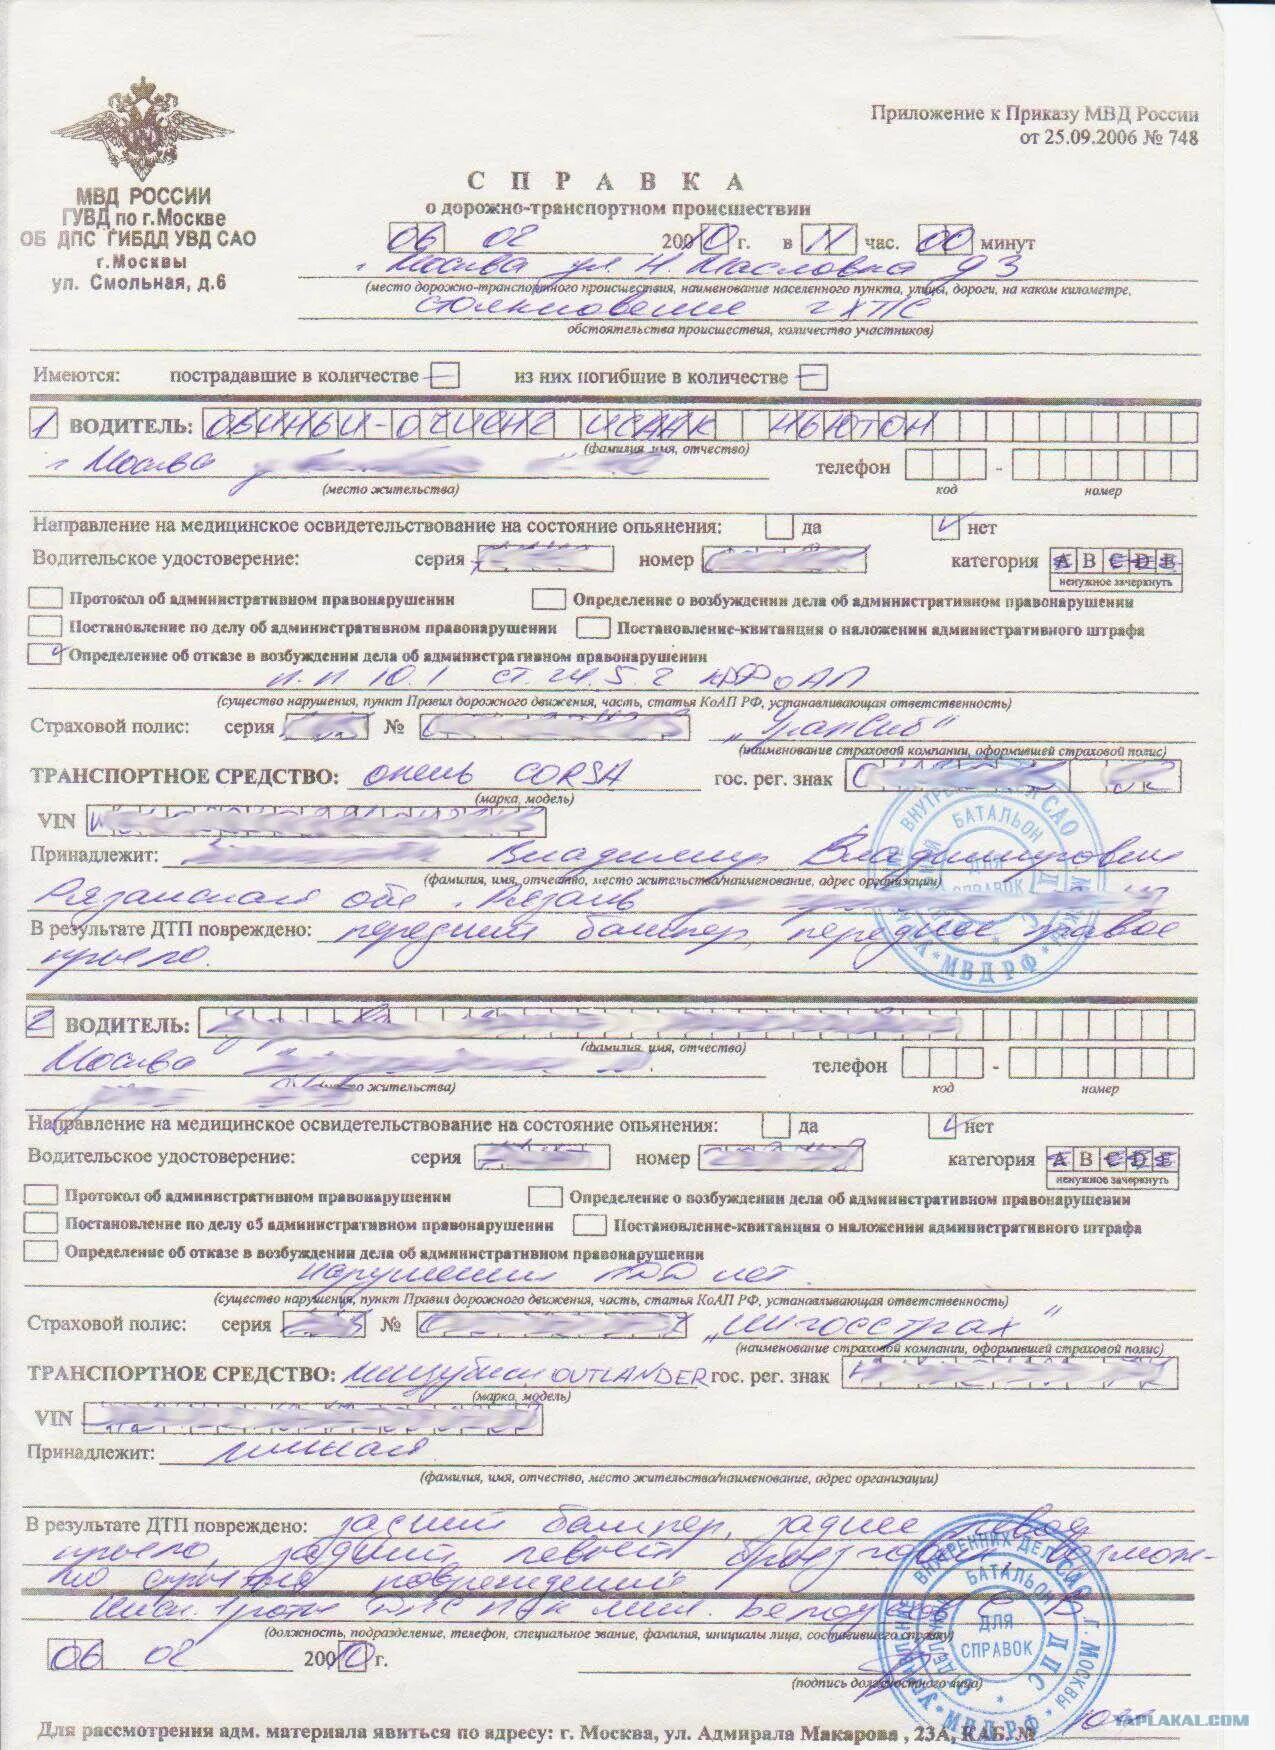 Приложение к Приказу МВД России
от 25.09.2006 № 748
МВД РОССИИ
ГУВД по г.Москве
ОБ ДПС ГИБДД УВД САО
г.Москвы
ул. Смольная, д.6
СПРАВКА
о дорожно-транспортном происшествии
06 02 2010 г. в 11 час. 00 минут
г. Москва ул. Н. Масловка д 3
(место дорожно-транспортного происшествия, наименование населенного пункта, улицы, дороги, на каком километре,
столкновение 2х ТС
обстоятельства происшествия, количество участников)
Имеются: пострадавшие в количестве — из них погибшие в количестве —
1 ВОДИТЕЛЬ: ОВИНЫИ-ОЧИЕНГ ИСААК НЬЮТОН
(фамилия, имя, отчество)
г Москва
телефон
(место жительства) код номер
Направление на медицинское освидетельствование на состояние опьянения: да нет
Водительское удостоверение: серия номер категория A B C D E
ненужное зачеркнуть
Протокол об административном правонарушении Определение о возбуждении дела об административном правонарушении
Постановление по делу об административном правонарушении Постановление-квитанция о наложении административного штрафа
Определение об отказе в возбуждении дела об административном правонарушении
п.п 10.1 ст. 24.5. 2 КРФоАП
(существо нарушения, пункт Правил дорожного движения, часть, статья КоАП РФ, устанавливающая ответственность)
Страховой полис: серия № „Уралсиб"
(наименование страховой компании, оформившей страховой полис)
ТРАНСПОРТНОЕ СРЕДСТВО: опель CORSA гос. рег. знак
(марка, модель)
VIN
Принадлежит: Владимир Владимирович
(фамилия, имя, отчество, место жительства/наименование, адрес организации)
Рязанская обл. г. Рязань
В результате ДТП повреждено: передний бампер, переднее правое
крыло.
2 ВОДИТЕЛЬ:
(фамилия, имя, отчество)
Москва
телефон
жительства) код номер
Направление на медицинское освидетельствование на состояние опьянения: да нет
Водительское удостоверение: серия номер категория A B C D E
ненужное зачеркнуть
Протокол об административном правонарушении Определение о возбуждении дела об административном правонарушении
Постановление по делу об административном правонарушении Постановление-квитанция о наложении административного штрафа
Определение об отказе в возбуждении дела об административном правонарушении
нарушения ПДД нет.
(существо нарушения, пункт Правил дорожного движения, часть, статья КоАП РФ, устанавливающая ответственность)
Страховой полис: серия № „Ингосстрах"
(наименование страховой компании, оформившей страховой полис)
ТРАНСПОРТНОЕ СРЕДСТВО: мицубиси OUTLANDER гос. рег. знак
(марка, модель)
VIN
Принадлежит: личная
(фамилия, имя, отчество, место жительства/наименование, адрес организации)
В результате ДТП повреждено: задний бампер, заднее левое
крыло, задний левый брызговик, возмож-
но скрытые повреждения.
(должность, подразделение, телефон, специальное звание, фамилия, инициалы лица, составившего справку)
06 02 2010 г.
(подпись должностного лица)
БАТАЛЬОН ДПС
ДЛЯ СПРАВОК
МВД РФ
Для рассмотрения адм. материала явиться по адресу: г. Москва, ул. Адмирала Макарова , 23А, КАБ.№
YAPLAKAL.COM